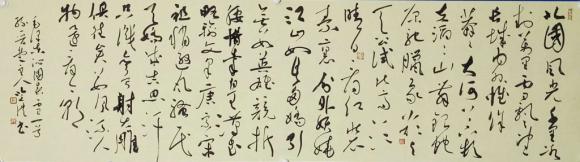 北国风光千里冰
封万里雪飘望
长城内外惟余
莽莽大河上下顿
失滔滔山舞银蛇
原驰蜡象欲与
天公试比高须
晴日看红装
素裹分外妖娆
江山如此多娇引
无数英雄竞折
腰惜秦皇汉武
略输文采唐宗宋
祖稍逊风骚一代
天骄成吉思汗
只识弯弓射大雕
俱往矣数风流人
物还看今朝
毛泽东沁园春雪一首